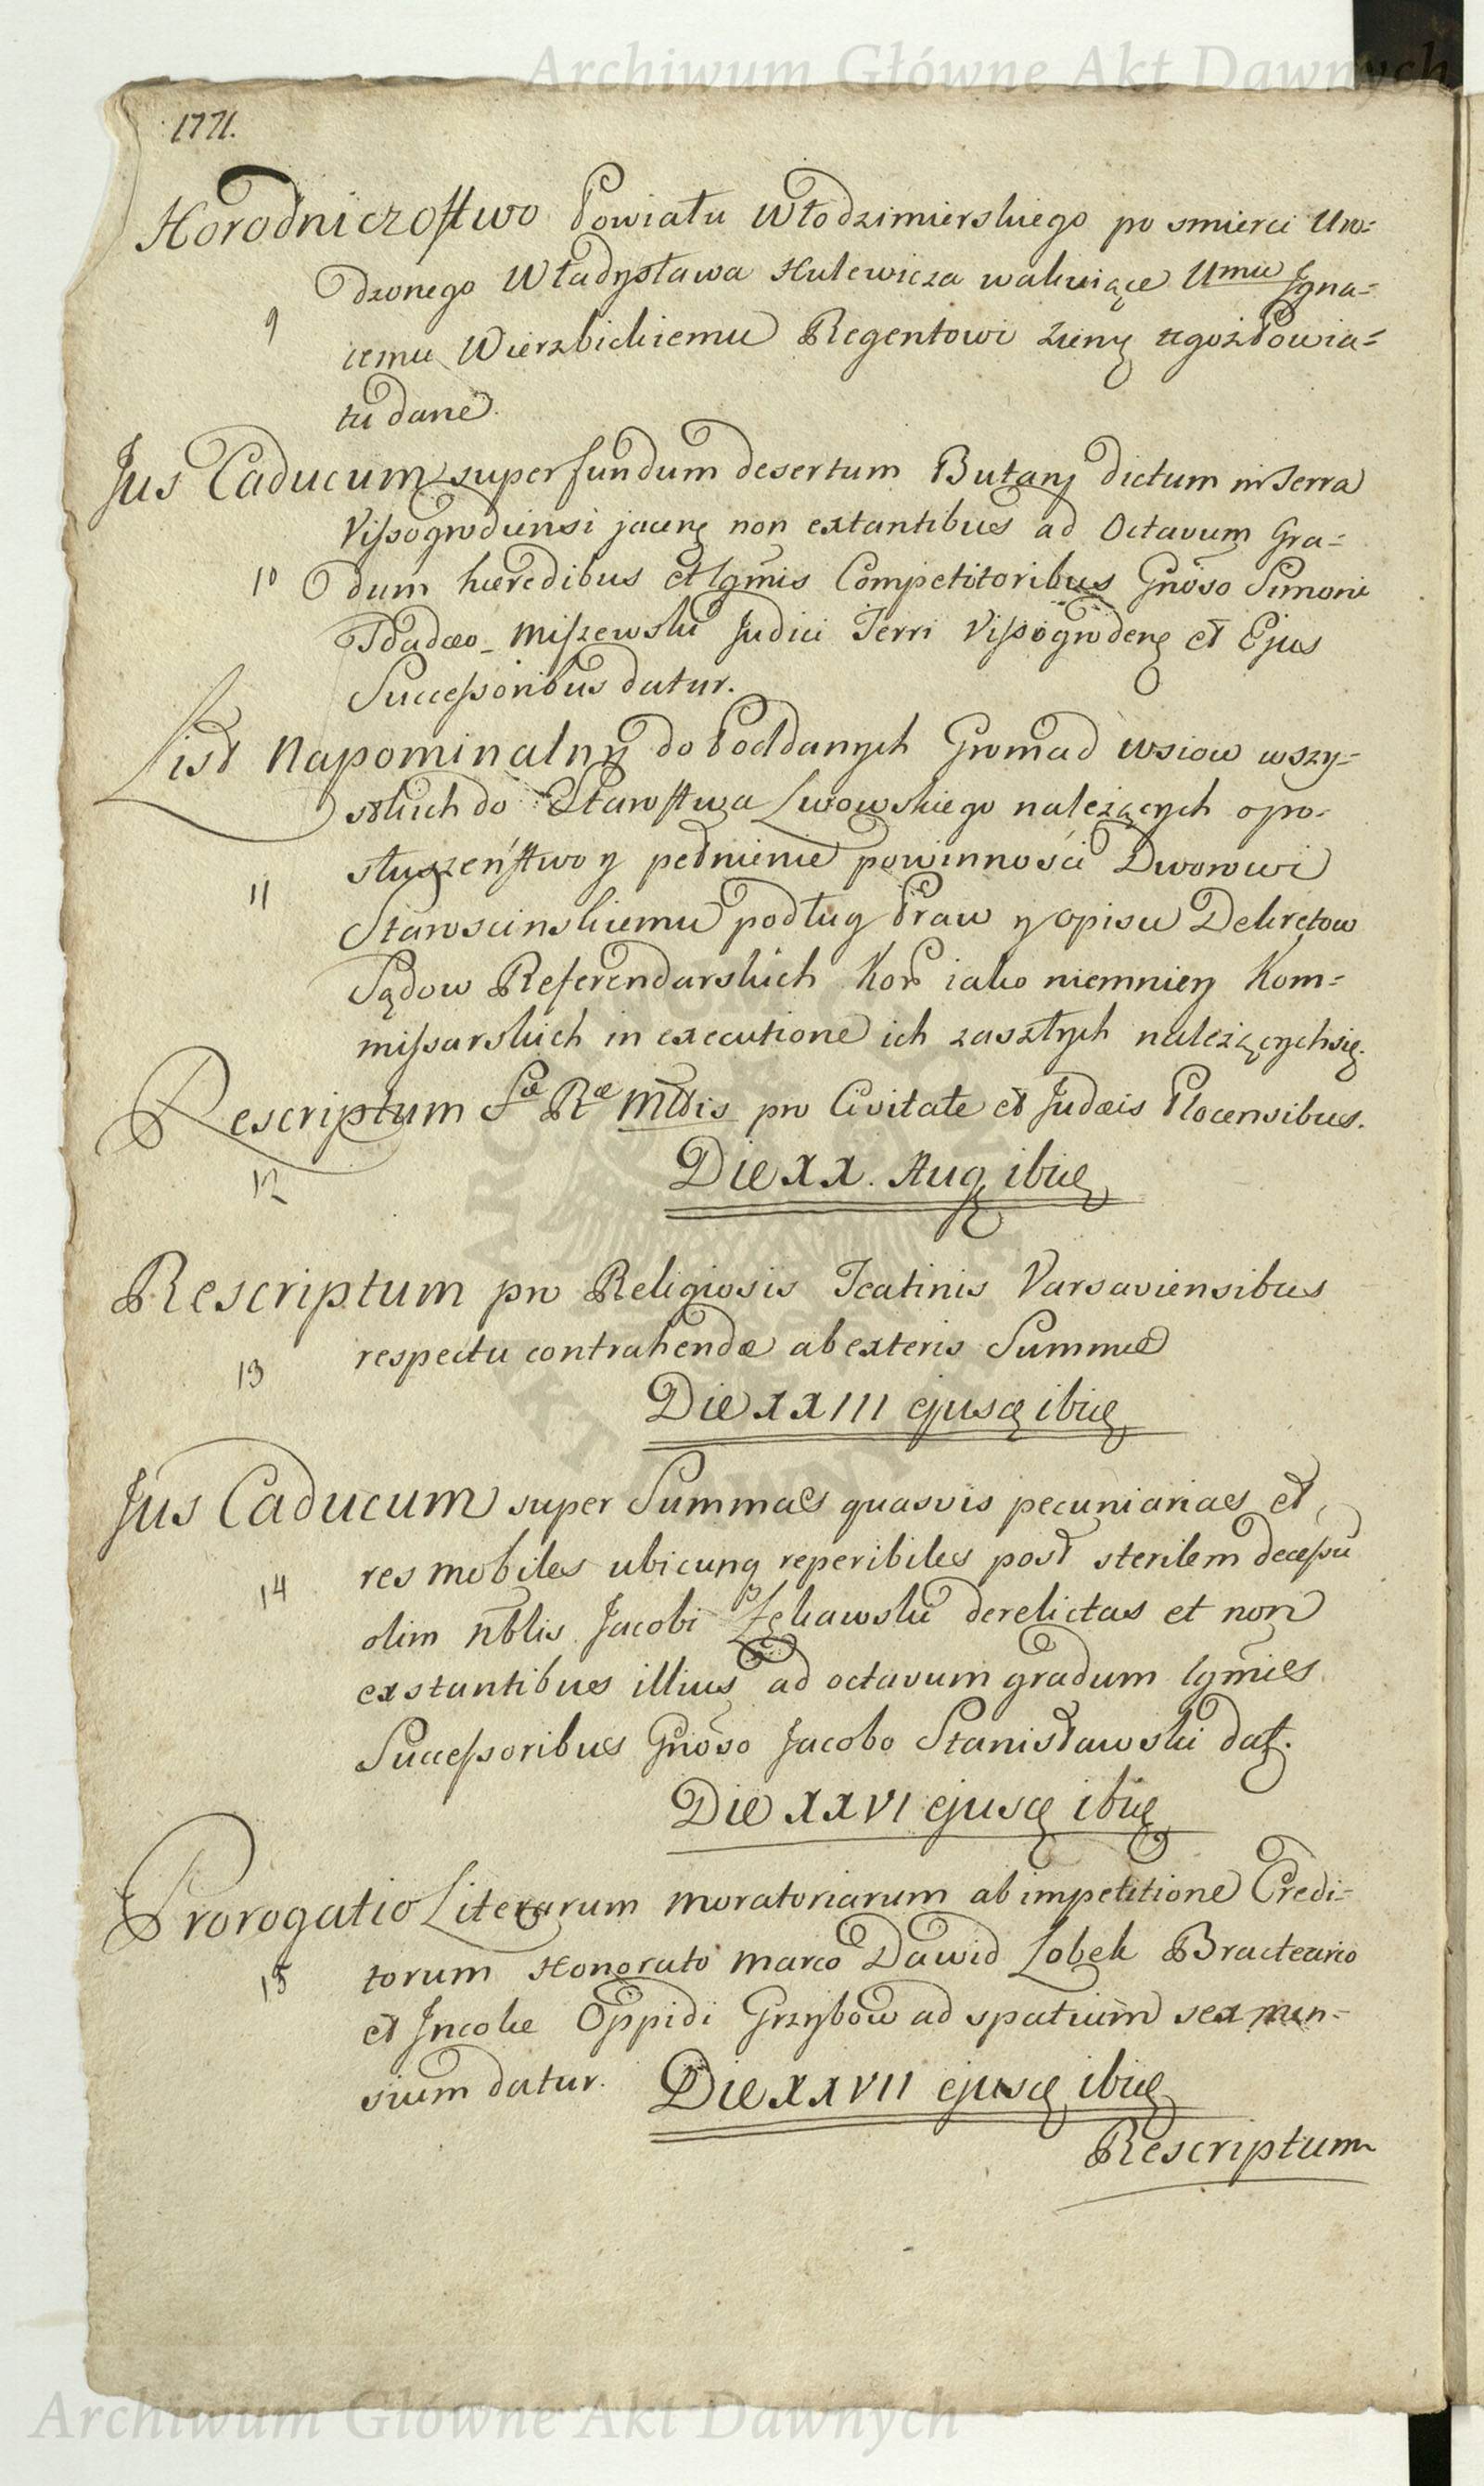 Archiwum Główne Akt Dawnych
1771.
Horodniczostwo Powiatu Włodzimierskiego po smierci Uro=
dzonego Władysława Hulewicza wakuiące Umu Igna=
9
cemu Wierzbickiemu Regentowi Ziemę tegoż Powia=
tu dane.
Jus Caducum super fundum desertum Butany dictum in Terra
Vissogrodiensi jacenę non extantibus ad Octavum Gra=
10 dum hæredibus et lgmis Competitoribus Gnoso Simoni
Thadæo Miszewski Judici Terri Vissogrodenę et Ejus
Successoribus datur.
List Napominalny do Poddanych Gromad wsiow wszy=
stkich do Starostwa Lwowskiego należących o po-
słuszeństwo y pełnienie powinności Dworowi
11
Staroscinskiemu podług Praw y opisu Dekretow
Sądow Referendarskich Kor iako niemniey Kom=
missarskich in executione ich zaszłych należącychsię.
Rescriptum Sæ Ræ Mttis pro Civitate et Judæis Plocensibus.
12
Die XX. Aug ibię
Rescriptum pro Religiosis Teatinis Varsaviensibus
respectu contrahendæ ab exteris Summæ
13
Die XXIII ejusdę ibię
Jus Caducum super Summas quasvis pecuniarias et
res mobiles ubicunq reperibiles post sterilem decessu
14
olim nblis Jacobi Łękawski derelictas et non
exstantibus illius ad octavum gradum lgmis
Successoribus Gnoso Jacobo Stanisławski dat.
Die XXVI ejusdę ibię
Prorogatio Literarum Moratoriarum ab impetitione Credi=
torum Honorato Marco Dawid Lobek Bracteario
15
et Incolæ Oppidi Grzybow ad spatium sex men=
sium datur. Die XXVII ejusdę ibię
Rescriptum
Archiwum Główne Akt Dawnych